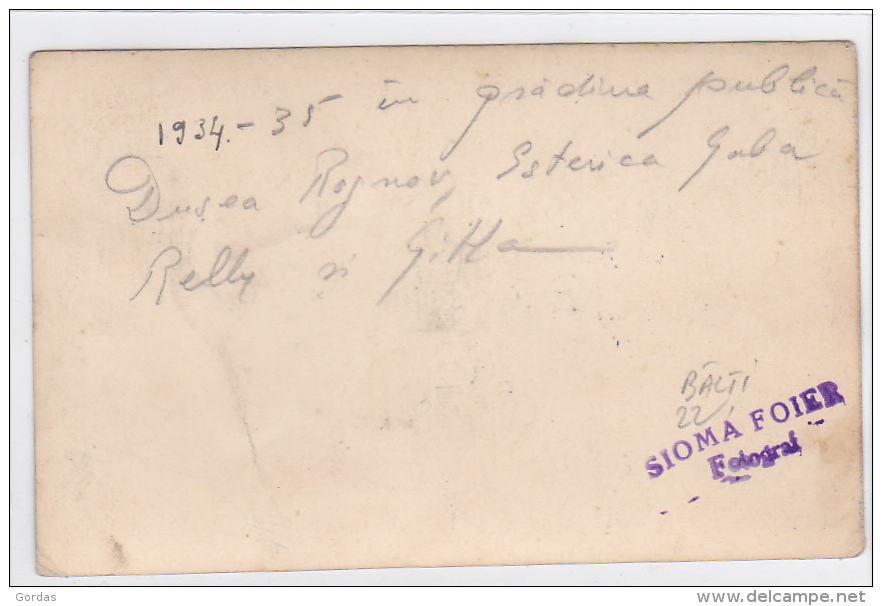 1934.-35 în grădina publică
Dusea Rojnov, Esterica Gaba
Relly și Gitta
BĂLȚI
22
SIOMA FOIER
Fotograf
Gordas
www.delcampe.net